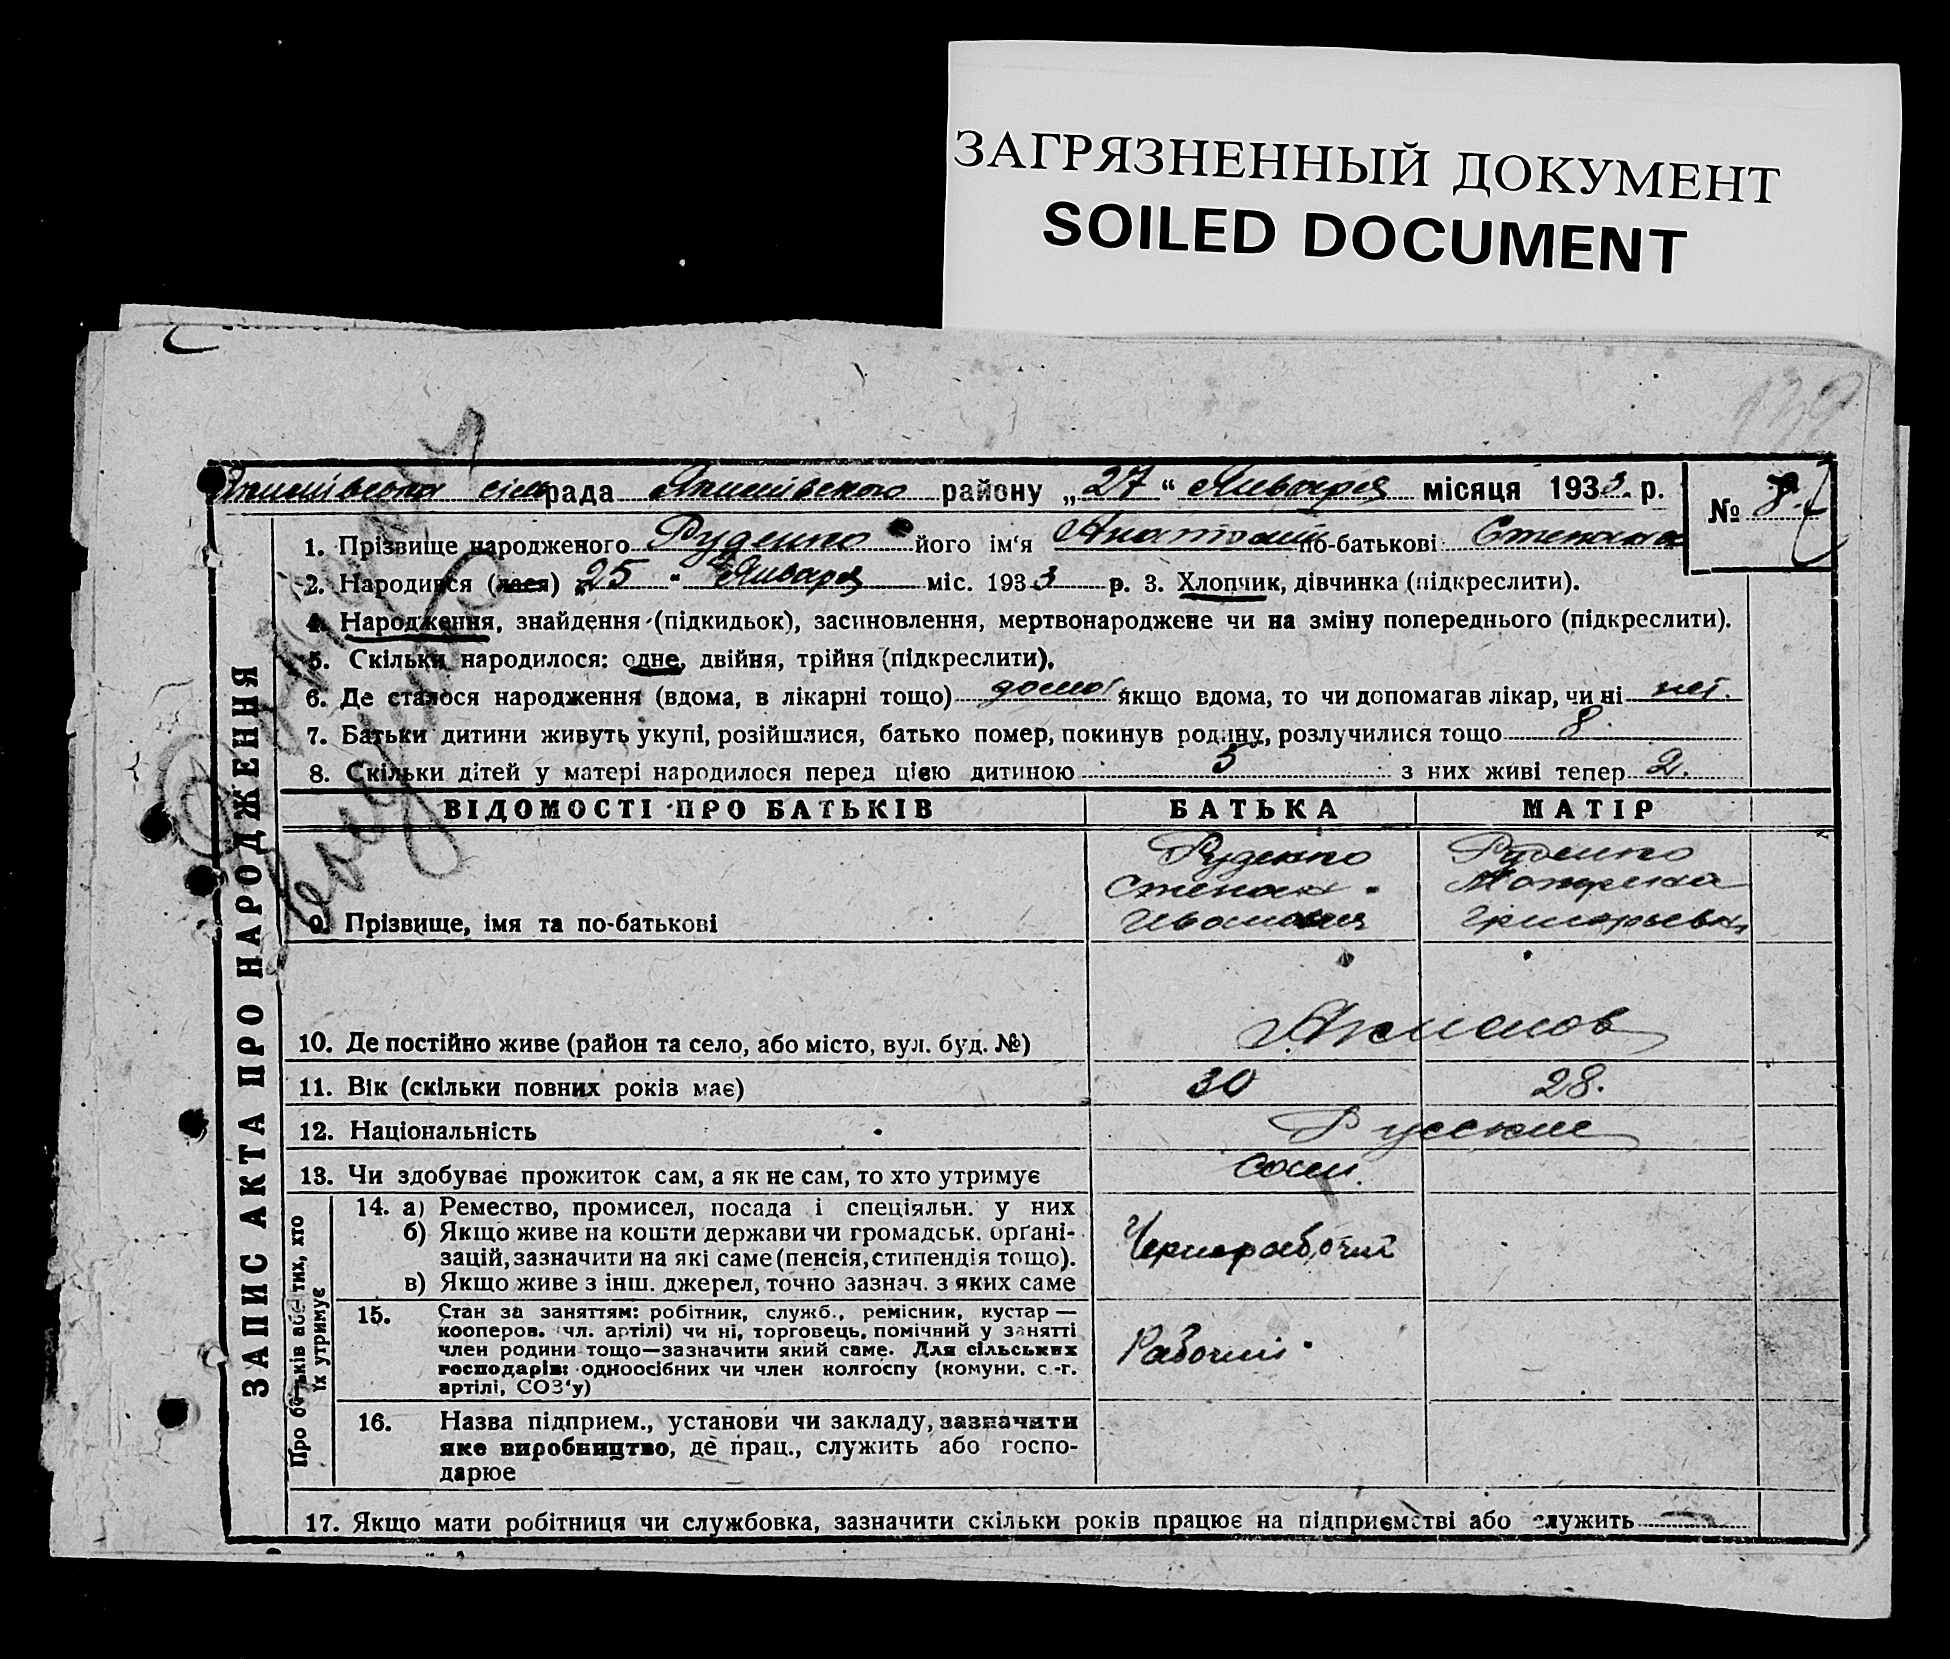 ЗАГРЯЗНЕННЫЙ ДОКУМЕНТ
SOILED DOCUMENT
рада району „27“ Января місяця 1933. р.
№ 8.
1. Прізвище народженого Руденко його ім‘я Анатолий по-батькові Степанов
2. Народився (лася) „25“ Января міс. 1933 р. 3. Хлопчик, дівчинка (підкреслити).
4. Народження, знайдення (підкидьок), засиновлення, мертвонароджене чи на зміну попереднього (підкреслити).
5. Скільки народилося: одне, двійня, трійня (підкреслити).
6. Де сталося народження (вдома, в лікарні тощо) дома якщо вдома, то чи допомагав лікар, чи ні нет.
7. Батьки дитини живуть укупі, розійшлися, батько помер, покинув родину, розлучилися тощо 8
8. Скільки дітей у матері народилося перед цією дитиною 5 з них живі тепер 2.
ЗАПИС АКТА ПРО НАРОДЖЕННЯ
ВІДОМОСТІ ПРО БАТЬКІВ БАТЬКА МАТІР
Руденко Руденко
Степан Мотрена
9. Прізвище, імя та по-батькові Иванович Григорьевна
10. Де постійно живе (район та село, або місто, вул. буд. №)
11. Вік (скільки повних років має) 30 28.
12. Національність Русские
13. Чи здобуває прожиток сам, а як не сам, то хто утримує сами.
Про батьків або тих, хто
їх утримує
14. а) Ремество, промисел, посада і спеціяльн. у них
б) Якщо живе на кошти держави чи громадськ. орґані-
зацій, зазначити на які саме (пенсія, стипендія тощо).
в) Якщо живе з інш. джерел, точно зазнач. з яких саме
Чернорабочий
15. Стан за заняттям: робітник, служб., ремісник, кустар —
кооперов. (чл. артілі) чи ні, торговець, помічний у занятті
член родини тощо—зазначити який саме. Для сільських
господарів: одноосібних чи член колгоспу (комуни, с.-г.
артілі, СОЗ‘у)
Рабочий
16. Назва підприєм., установи чи закладу, зазначити
яке виробництво, де прац., служить або госпо-
дарює
17. Якщо мати робітниця чи службовка, зазначити скільки років працює на підприємстві або служить